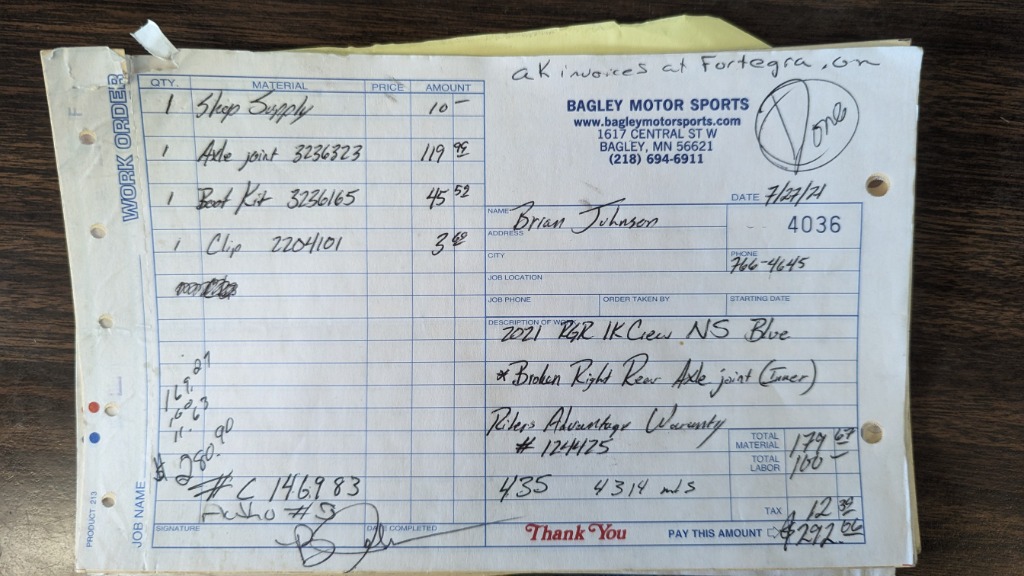 ak invoices at Fortegra.com
WORK ORDER
QTY. MATERIAL PRICE AMOUNT
1 Shop Supply 10 –
1 Axle joint 3236323 119 95
1 Boot Kit 3236165 45 52
1 Clip 2204101 3
169.27
11.63
$ 280.90
# C 146983
Autho #3
SIGNATURE DATE COMPLETED
PRODUCT 213
JOB NAME
BAGLEY MOTOR SPORTS
www.bagleymotorsports.com
1617 CENTRAL ST W
BAGLEY, MN 56621
(218) 694-6911
Done
DATE 7/27/21
NAME Brian Johnson
4036
ADDRESS
CITY
PHONE 766-4645
JOB LOCATION
JOB PHONE ORDER TAKEN BY STARTING DATE
DESCRIPTION OF WORK
2021 RGR 1K Crew NS Blue
* Broken Right Rear Axle joint (Inner)
Riders Advantage Waranty
# 1244125
TOTAL MATERIAL 179 67
TOTAL LABOR 100
435 4314 mls
TAX 12
Thank You PAY THIS AMOUNT $292.06